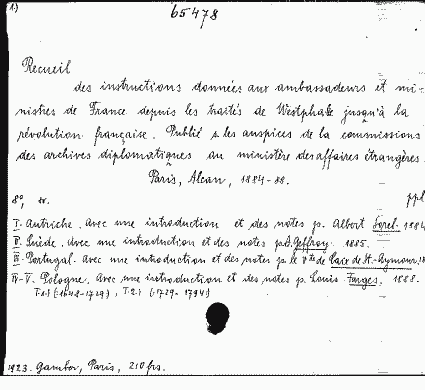 1.)
65478
Recueil
des instructions données aux ambassadeurs et mi-
nistres de France depuis les traités de Westphalie jusqu'à la
révolution française. Publié s. les auspices de la commissions
des archives diplomatiques au ministère des affaires étrangères.
Paris, Alcan, 1884-88.
8°, ppl
I. Autriche. Avec une introduction et des notes p. Albert Sorel. 1884
II. Suède. Avec une introduction et des notes p. A. Geffroy. 1885.
III. Portugal. Avec une introduction et des notes p. le Vte de Caix de St.-Aymour. 18
IV-V. Pologne. Avec une introduction et des notes p. Louis Farges. 1888.
T. 1 (1648-1729), T. 2 (1729-1794)
1923. Gamber, Paris, 210 frs.